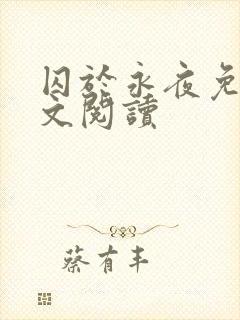 囚於永夜免
文閱讀
蔡有丰